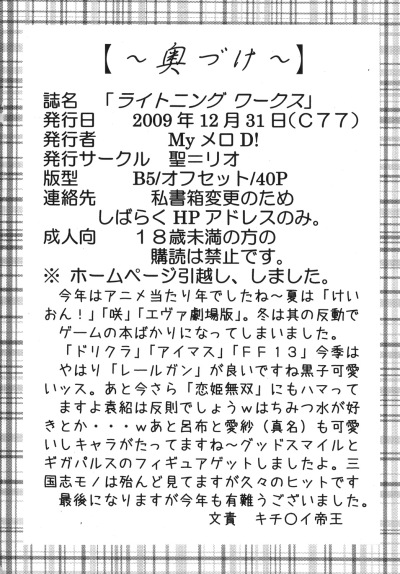 【～奥づけ～】
誌名 「ライトニング ワークス」
発行日 2009年12月31日(C77)
発行者 MyメロD!
発行サークル 聖＝リオ
版型 B5/オフセット/40P
連絡先 私書箱変更のため
しばらくHPアドレスのみ。
成人向 18歳未満の方の
購読は禁止です。
※ ホームページ引越し、しました。
今年はアニメ当たり年でしたね～夏は「けい
おん！」「咲」「エヴァ劇場版」。冬は其の反動で
ゲームの本ばかりになってしまいました。
「ドリクラ」「アイマス」「FF13」今季は
やはり「レールガン」が良いですね黒子可愛
いッス。あと今さら「恋姫無双」にもハマって
ますよ袁紹は反則でしょうwはちみつ水が好
きとか・・・wあと呂布と愛紗（真名）も可愛
いしキャラがたってますね～グッドスマイルと
ギガパルスのフィギュアゲットしましたよ。三
国志モノは殆んど見てますが久々のヒットです
最後になりますが今年も有難うございました。
文責 キチ〇イ帝王